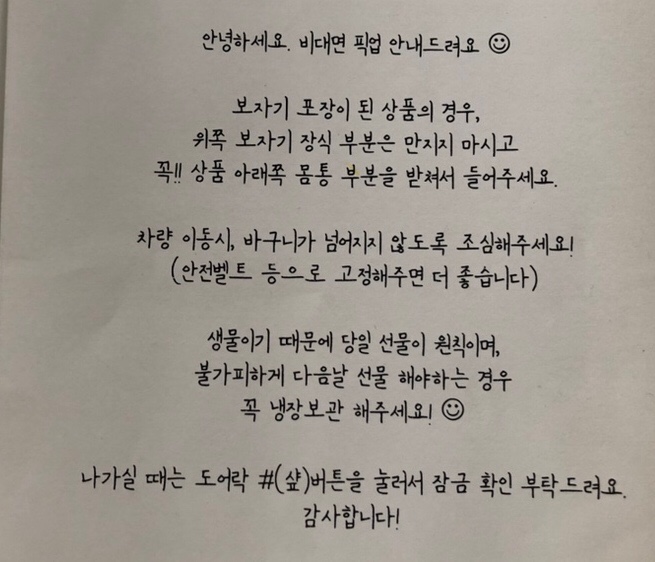 안녕하세요. 비대면 픽업 안내드려요 ☺
보자기 포장이 된 상품의 경우,
위쪽 보자기 장식 부분은 만지지 마시고
꼭!! 상품 아래쪽 몸통 부분을 받쳐서 들어주세요.
차량 이동시, 바구니가 넘어지지 않도록 조심해주세요!
(안전벨트 등으로 고정해주면 더 좋습니다)
생물이기 때문에 당일 선물이 원칙이며,
불가피하게 다음날 선물 해야하는 경우
꼭 냉장보관 해주세요! ☺
나가실 때는 도어락 #(샾)버튼을 눌러서 잠금 확인 부탁드려요.
감사합니다!